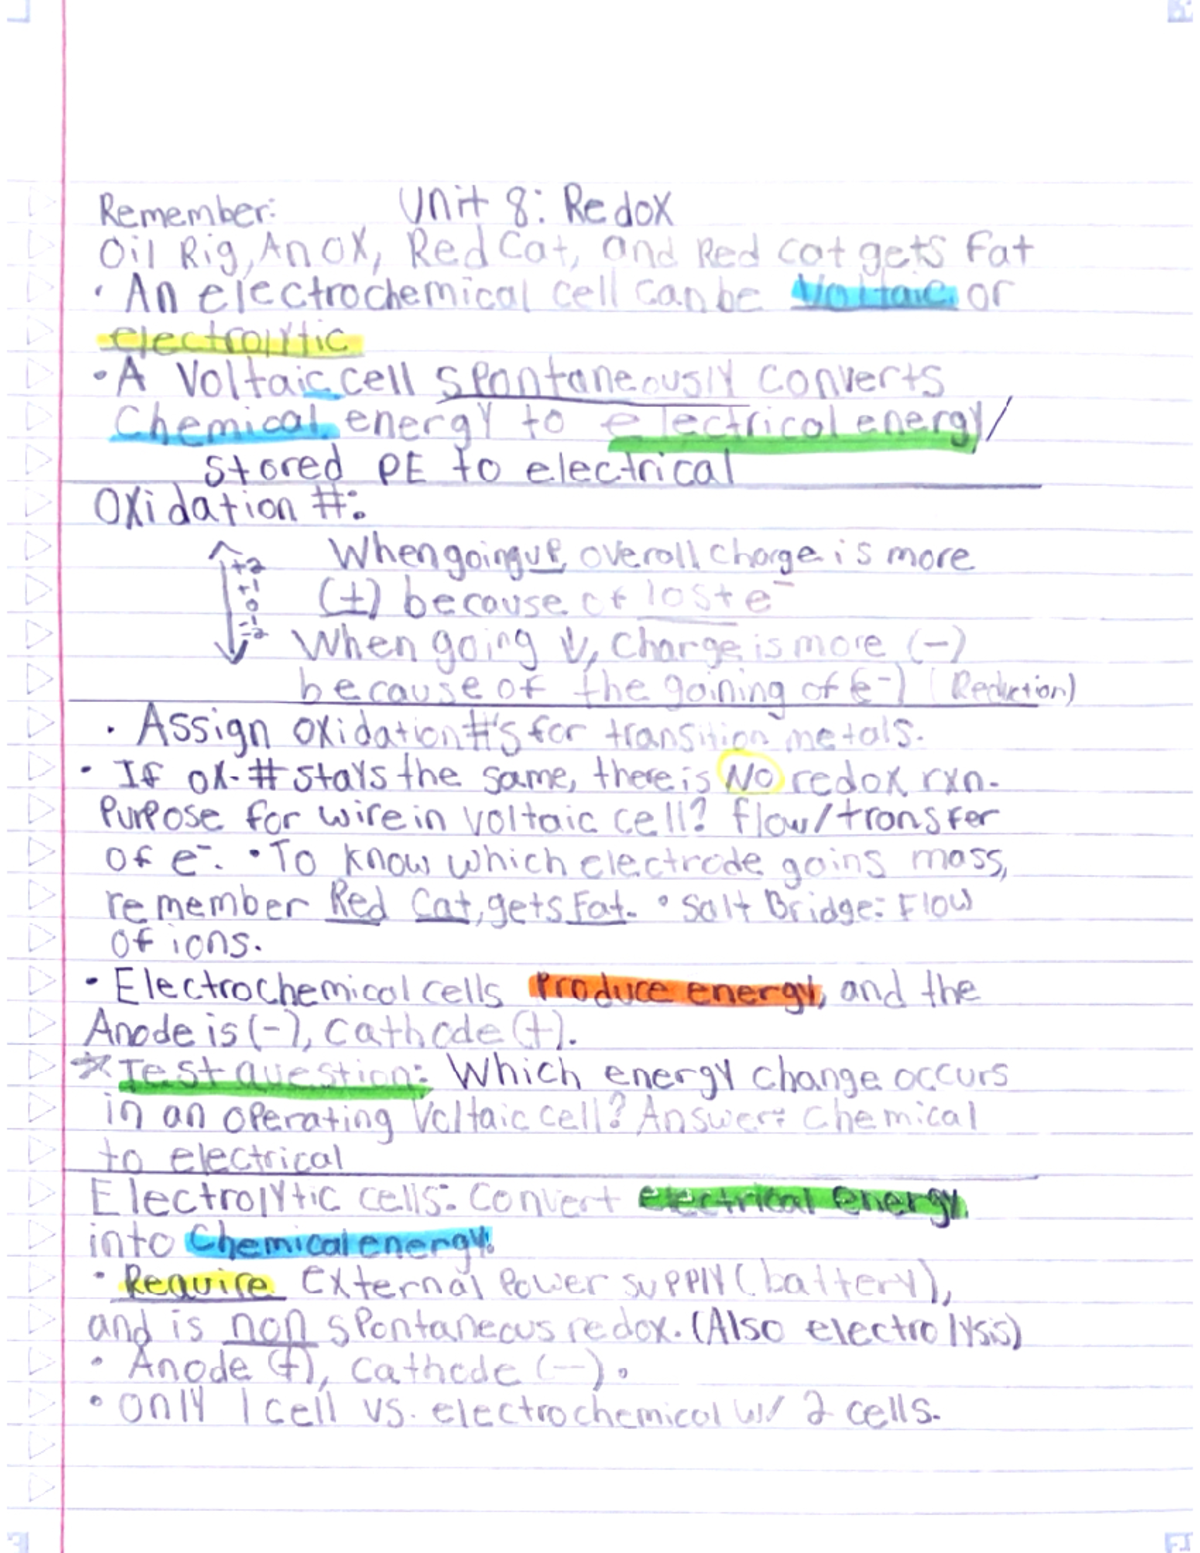 Remember: Unit 8: Redox
Oil Rig, An OX, Red Cat, and Red cat gets Fat
• An electrochemical cell can be Voltaic or
electrolytic
• A Voltaic cell spontaneously converts
Chemical energy to electrical energy/
stored PE to electrical
Oxidation #:
+2
+1
0
-1
-2
When going up, overall charge is more
(+) because of lost e⁻
When going ↓, charge is more (-)
because of the gaining of e⁻) (Reduction)
• Assign oxidation #'s for transition metals.
• If ox. # stays the same, there is NO redox rxn.
Purpose for wire in voltaic cell? flow/transfer
of e⁻. • To know which electrode gains mass,
remember Red Cat, gets Fat. • Salt Bridge: Flow
of ions.
• Electrochemical cells produce energy, and the
Anode is (-), cathode (+).
* Test question: Which energy change occurs
in an operating Voltaic cell? Answer: Chemical
to electrical
Electrolytic cells: Convert electrical energy
into Chemical energy.
• Require External power supply (battery),
and is non spontaneous redox. (Also electrolysis)
• Anode (+), Cathode (-).
• only 1 cell vs. electrochemical w/ 2 cells.